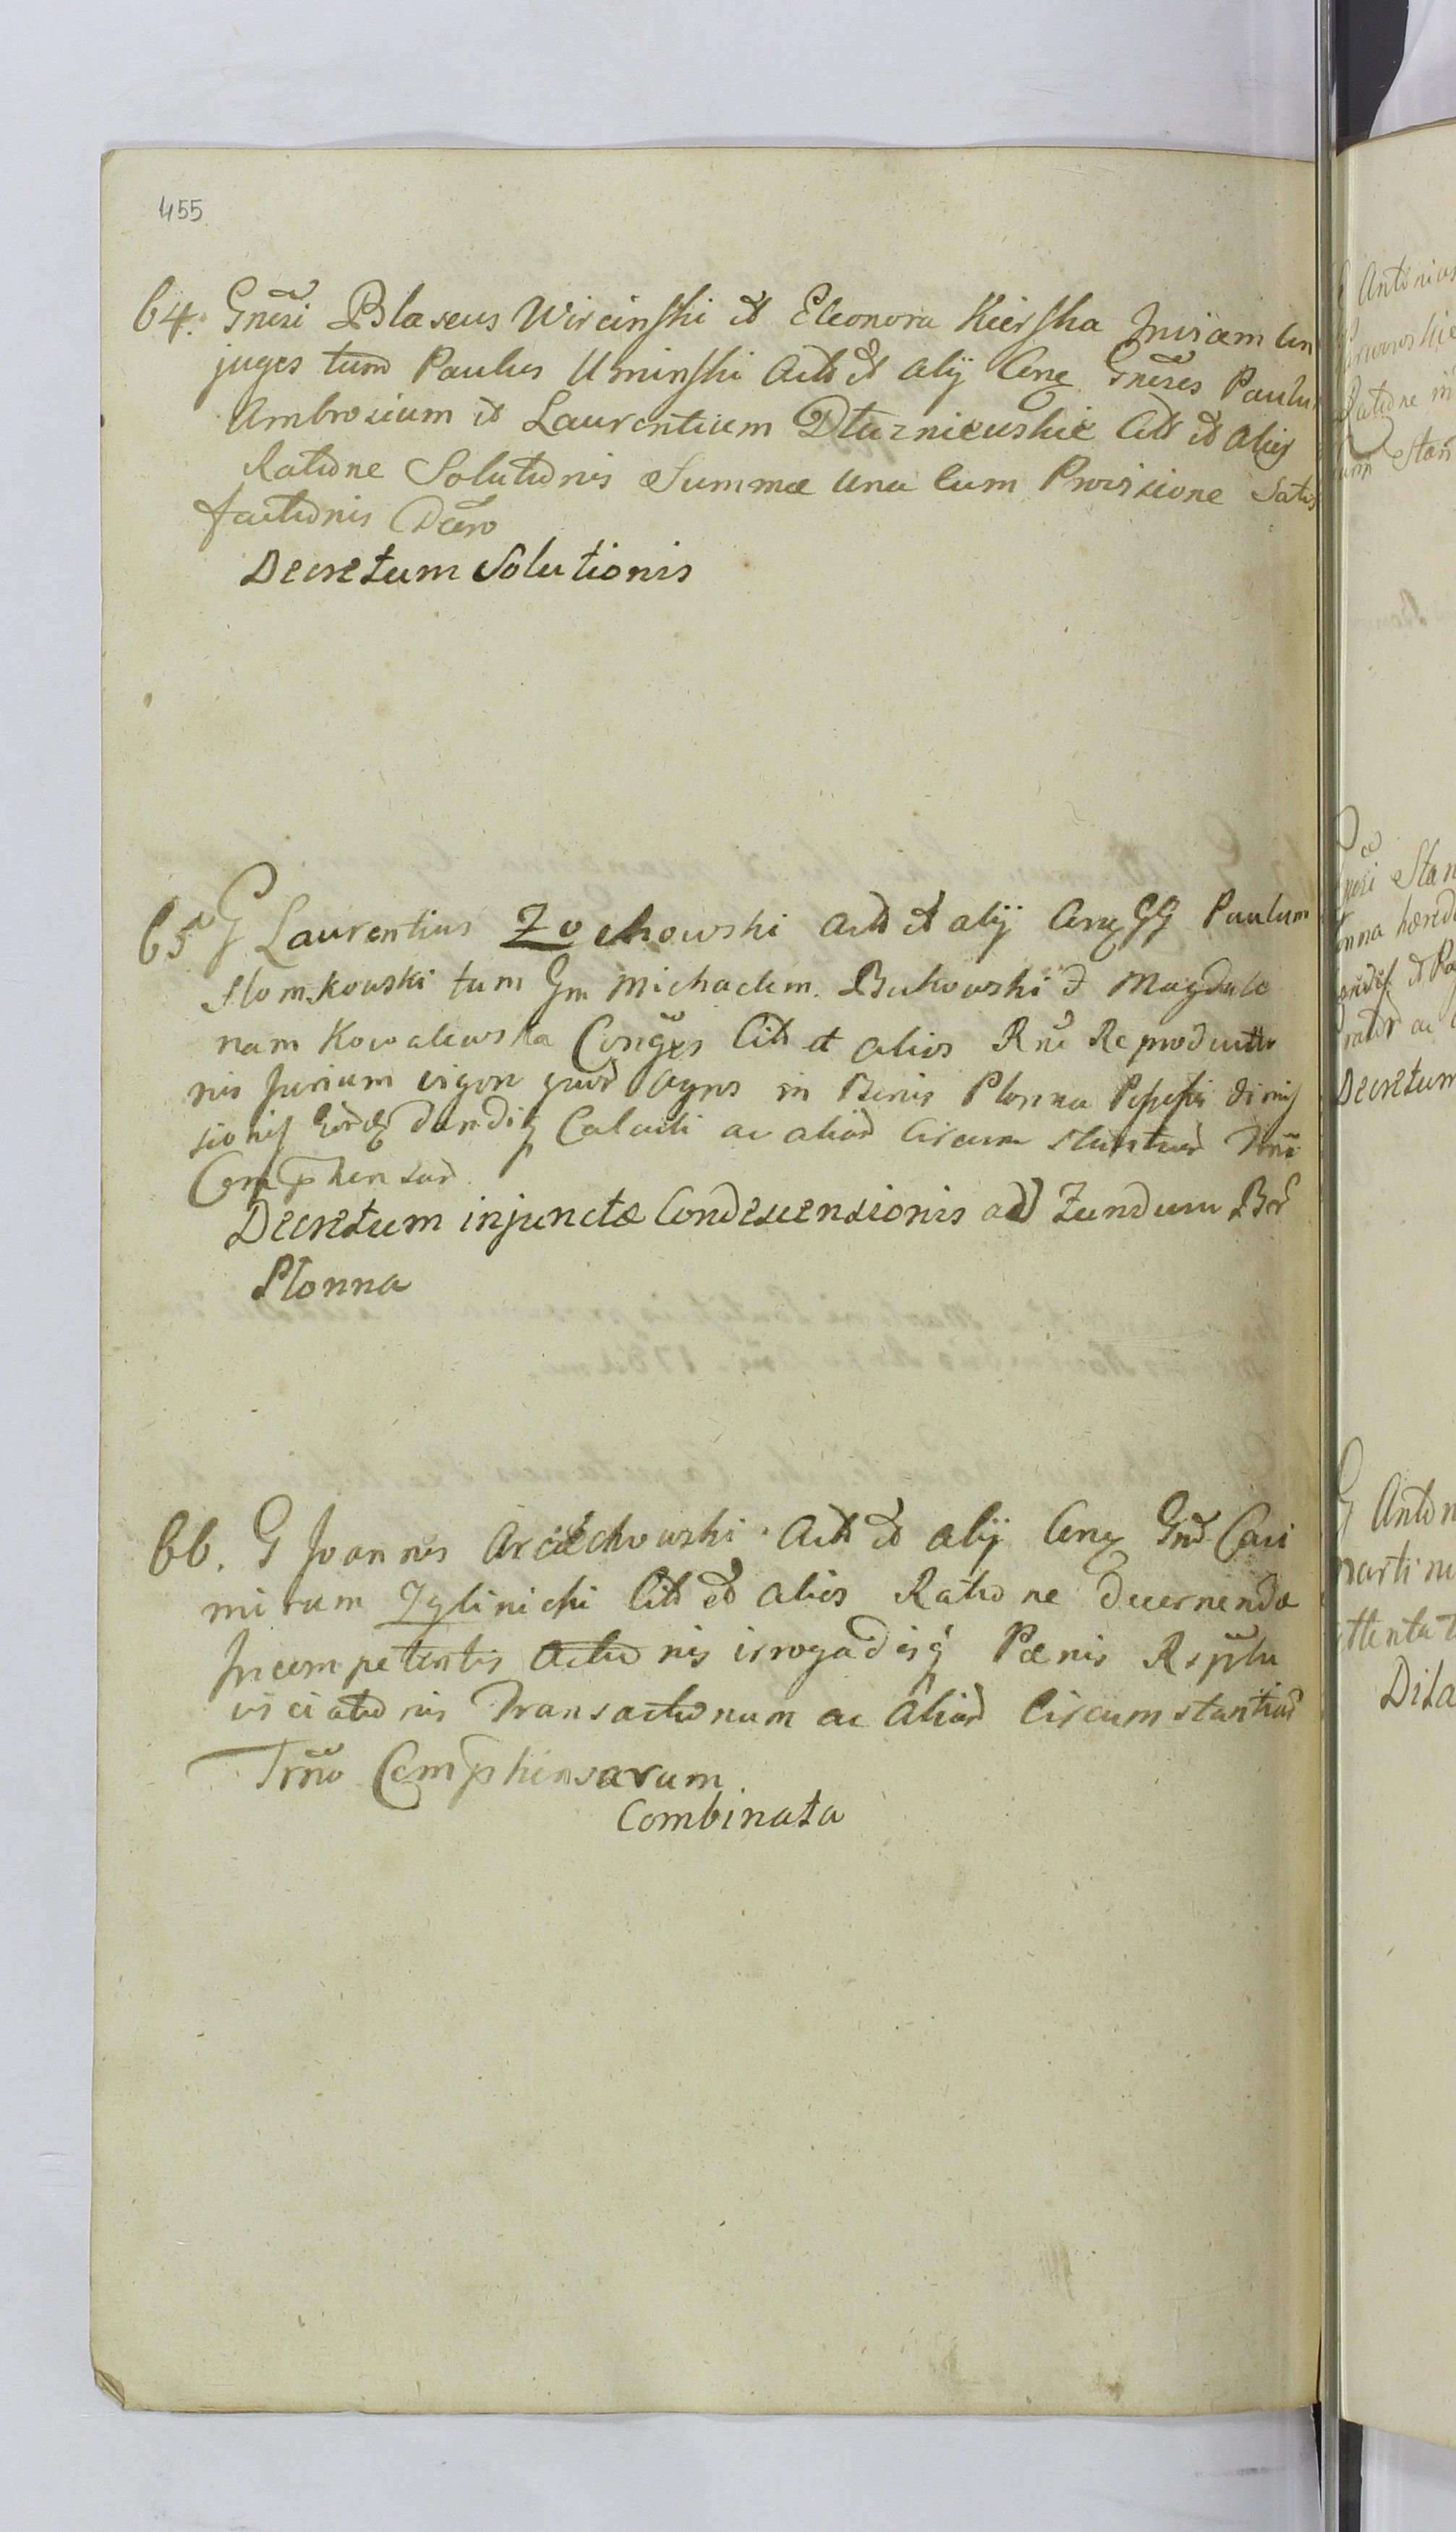 455
64. Gnesi Blaseus Wircinski et Eleonora Kierska Invicem Con
juges tum Paulus Uminski Act et alij Cnrq Gneses Paulu
Ambrosium et Laurentium Dłuznieuskie Citt et alios
Ratione Solutionis Summæ una cum Provisione Satis
factionis Dcero
Decretum Solutionis
65 G Laurentius Zochowski Act et alij Cnrq GG Paulum
Slomkowski tum Gm Michaelem Bukowski et Magdale
nam Kowalewska Conges Citt et alios Rne Reproductio
nis Jurium vigore quor Agros in Bonis Płonna dimis
sionis dandiq Calculi ac aliar Circumstantiar Trni
Comphensar
Decretum injunctæ Condescensionis ad Fundum Bor
Płonna
66. G Joannes Arcichowski Act et alij Cnrq Gnr Casi
mirum Zglinicki Citt et alios Ratione decernendæ
Incompetentis Actionis irrogadisq Pænis
viciationis Transactionum ac aliar Circumstantiar
Trno Comphensarum
Combinata
Antonius
Ratione in
Stan
Stan
Decretum
G Anton
Martinu
attentat
Dila